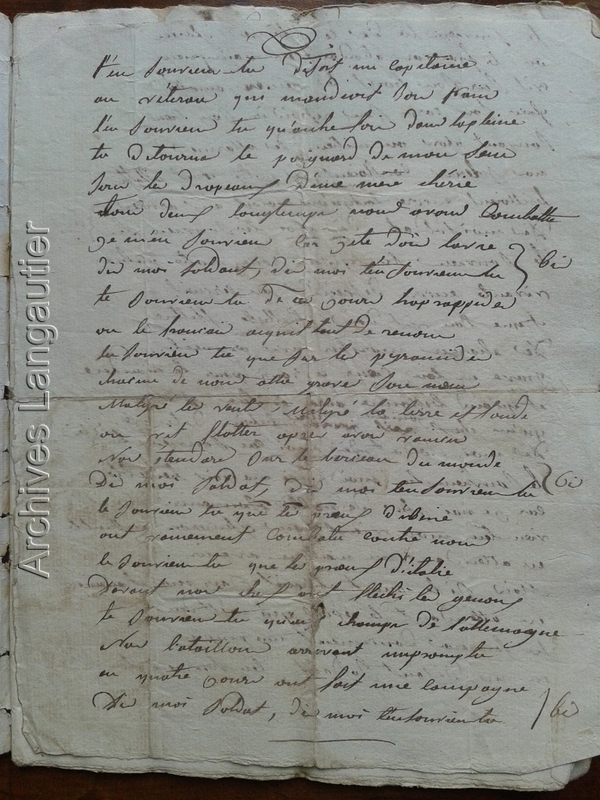 t'en Souvien tu disoit un capitaine
au véterau qui mandioit Son pain
t'en Souvien tu qu'autre foi dans la pleine
tu détourna le poignard de mon Sein
Sou le drapeaux d'une mere chérie
tout deux longtemps nous avons Combattu
je m'en Souvien car je te doi la vie
di moi Soldat, di moi t'en Souvien tu } bi
te Souvien tu de ce jours trop rappides
ou le francai acquit tent de renom
te Souvien tu que Sur le pyramide
chacun de nous alla gravé Son nom
Malgré le vent, Malgré la terre et l'onde
on vit flotter apre avoir vaincu
Nos étendard Sur le berceau du monde
Di moi Soldat, di moi t'en Souvien tu } bi
te Souvien tu que le preux d'ibérie
ont vainement Combatu contre nous
te Souvien tu que le preux d'italie
Devant nos chef ont fléchis le genoux
te Souvien tu qu'aux champs de l'allemagne
Nos bataillon arrivant impromptu
en quatre jours ont fait une Campagne
Di moi Soldat, di moi t'en souvien tu / bi
Archives Langautier